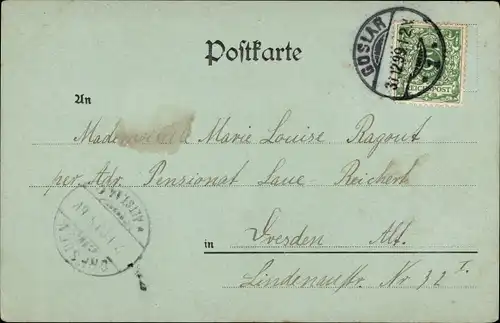 Postkarte
GOSLAR
31.12.99
REICHSPOST
An
Mademoiselle Marie Louise Ragout
per Adr. Pensionat Laue-Reichert
in Dresden Alt.
Lindenaustr. Nr 32 I.